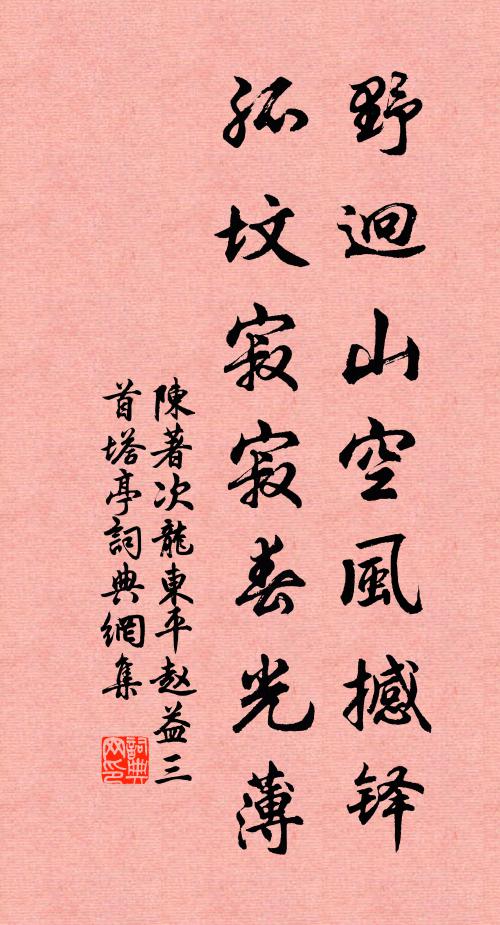 野迥山空風撼铎
孤坟寂寂春光薄
陳著次龍東平赵益三
首塔亭詞典網集
詞典网印